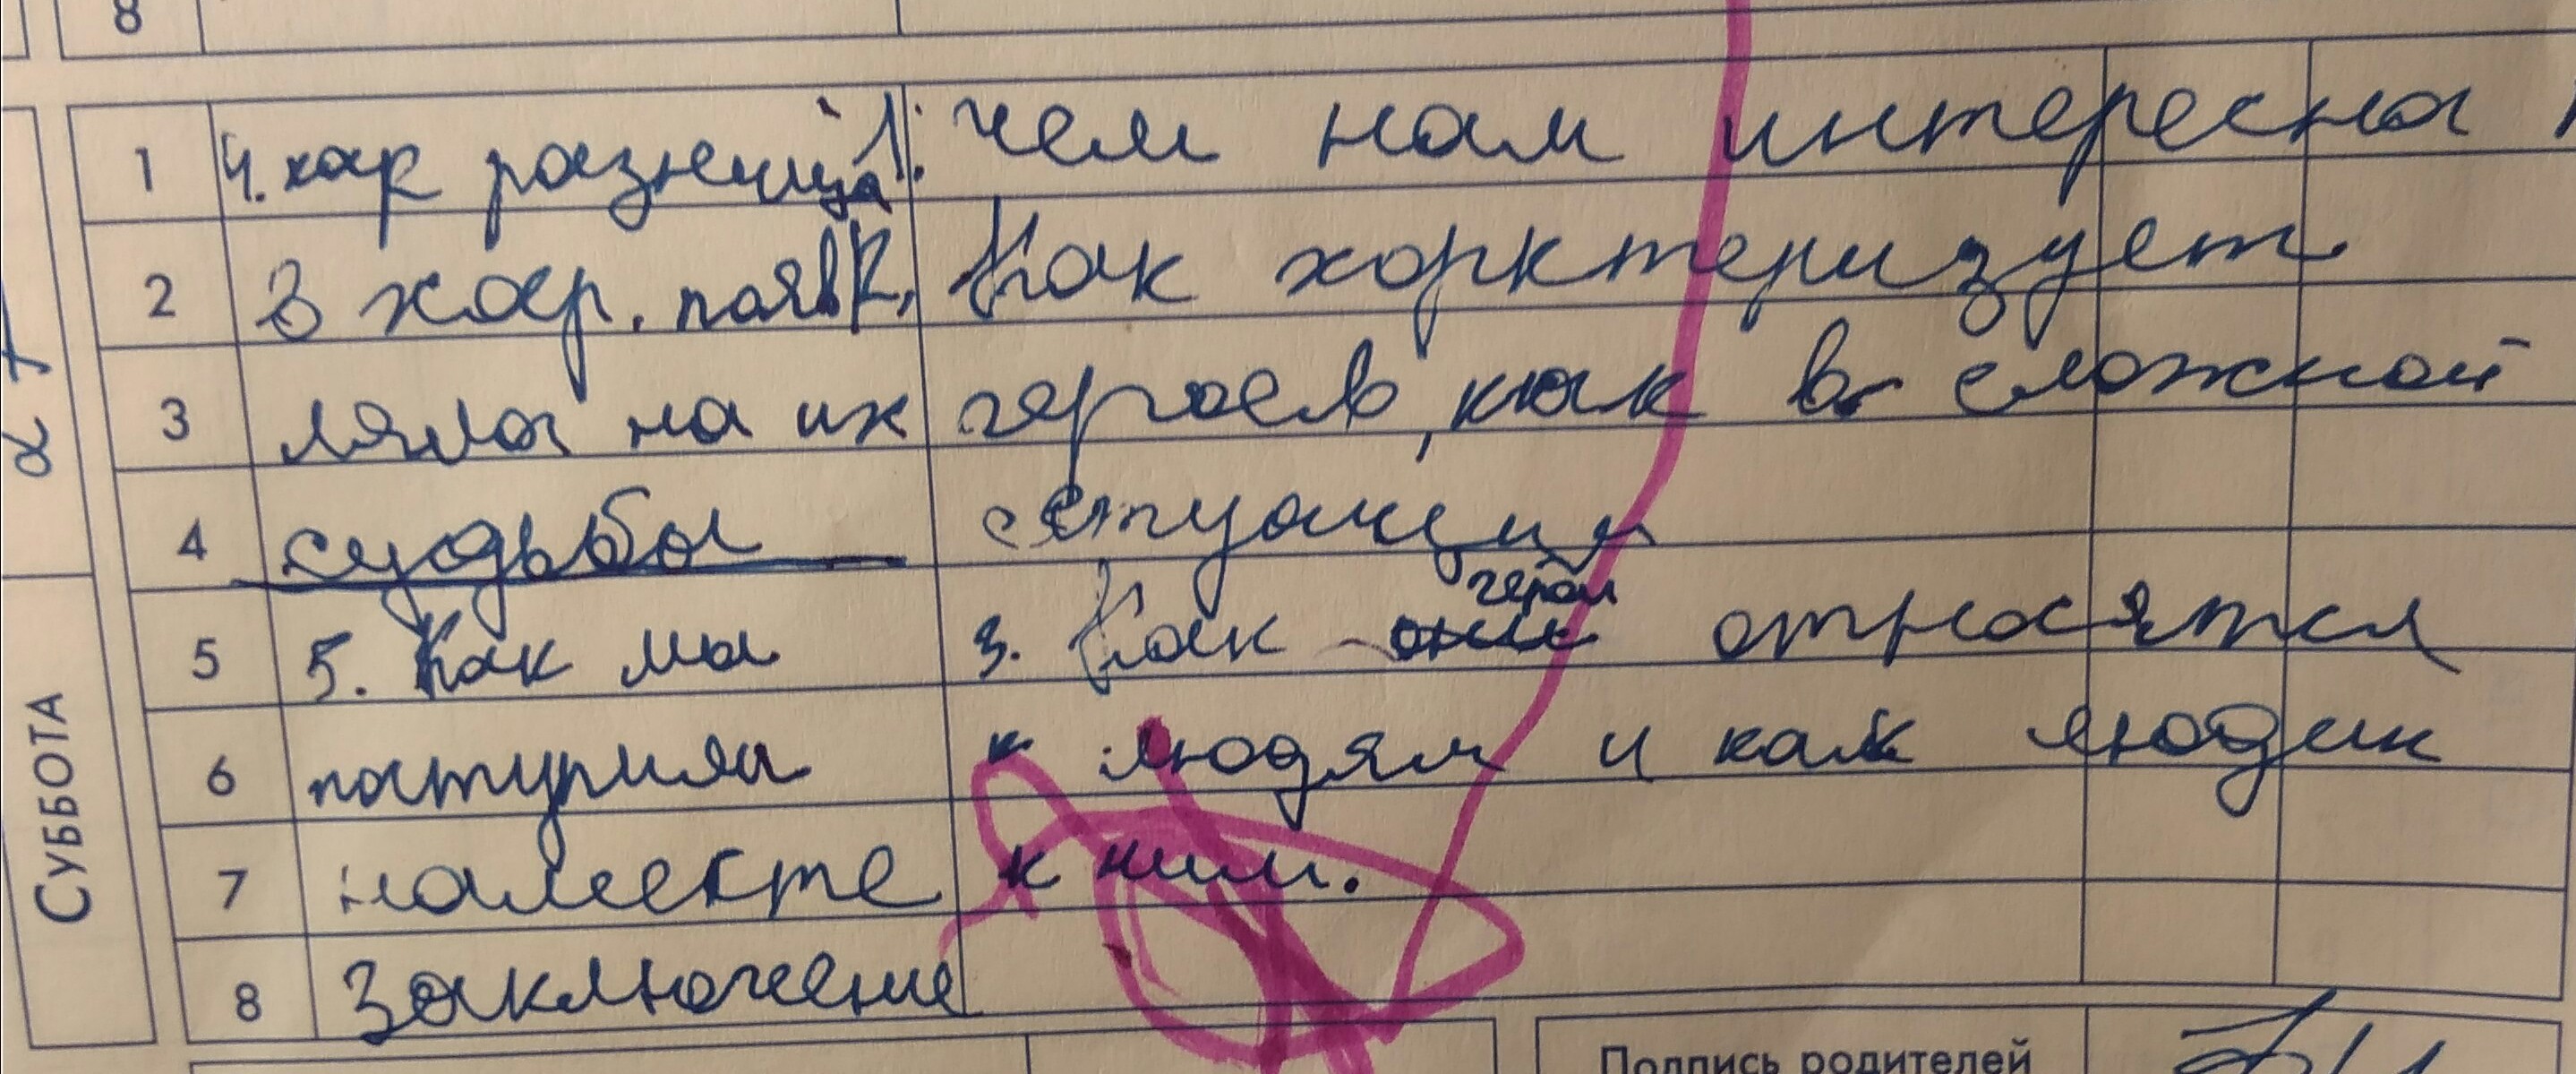 8
1 4. как разнеица 1. чем нам интересны
2 в хар. появ 2. Как хорктеризует
3 ляла на их героев, как в сложной
4 судьбы ситуации
герои
5 5. Как мы 3. Как они относятся
6 поступила к людям и как люди к
7 наместе к ним.
8 Заключение
СУББОТА
Подпись родителей